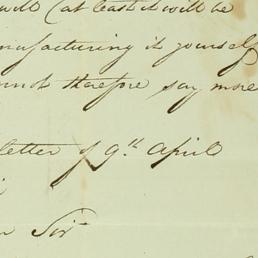 will (at least it will be
nufacturing it yourself
nnot therefore say more
letter of 9th April
Sir